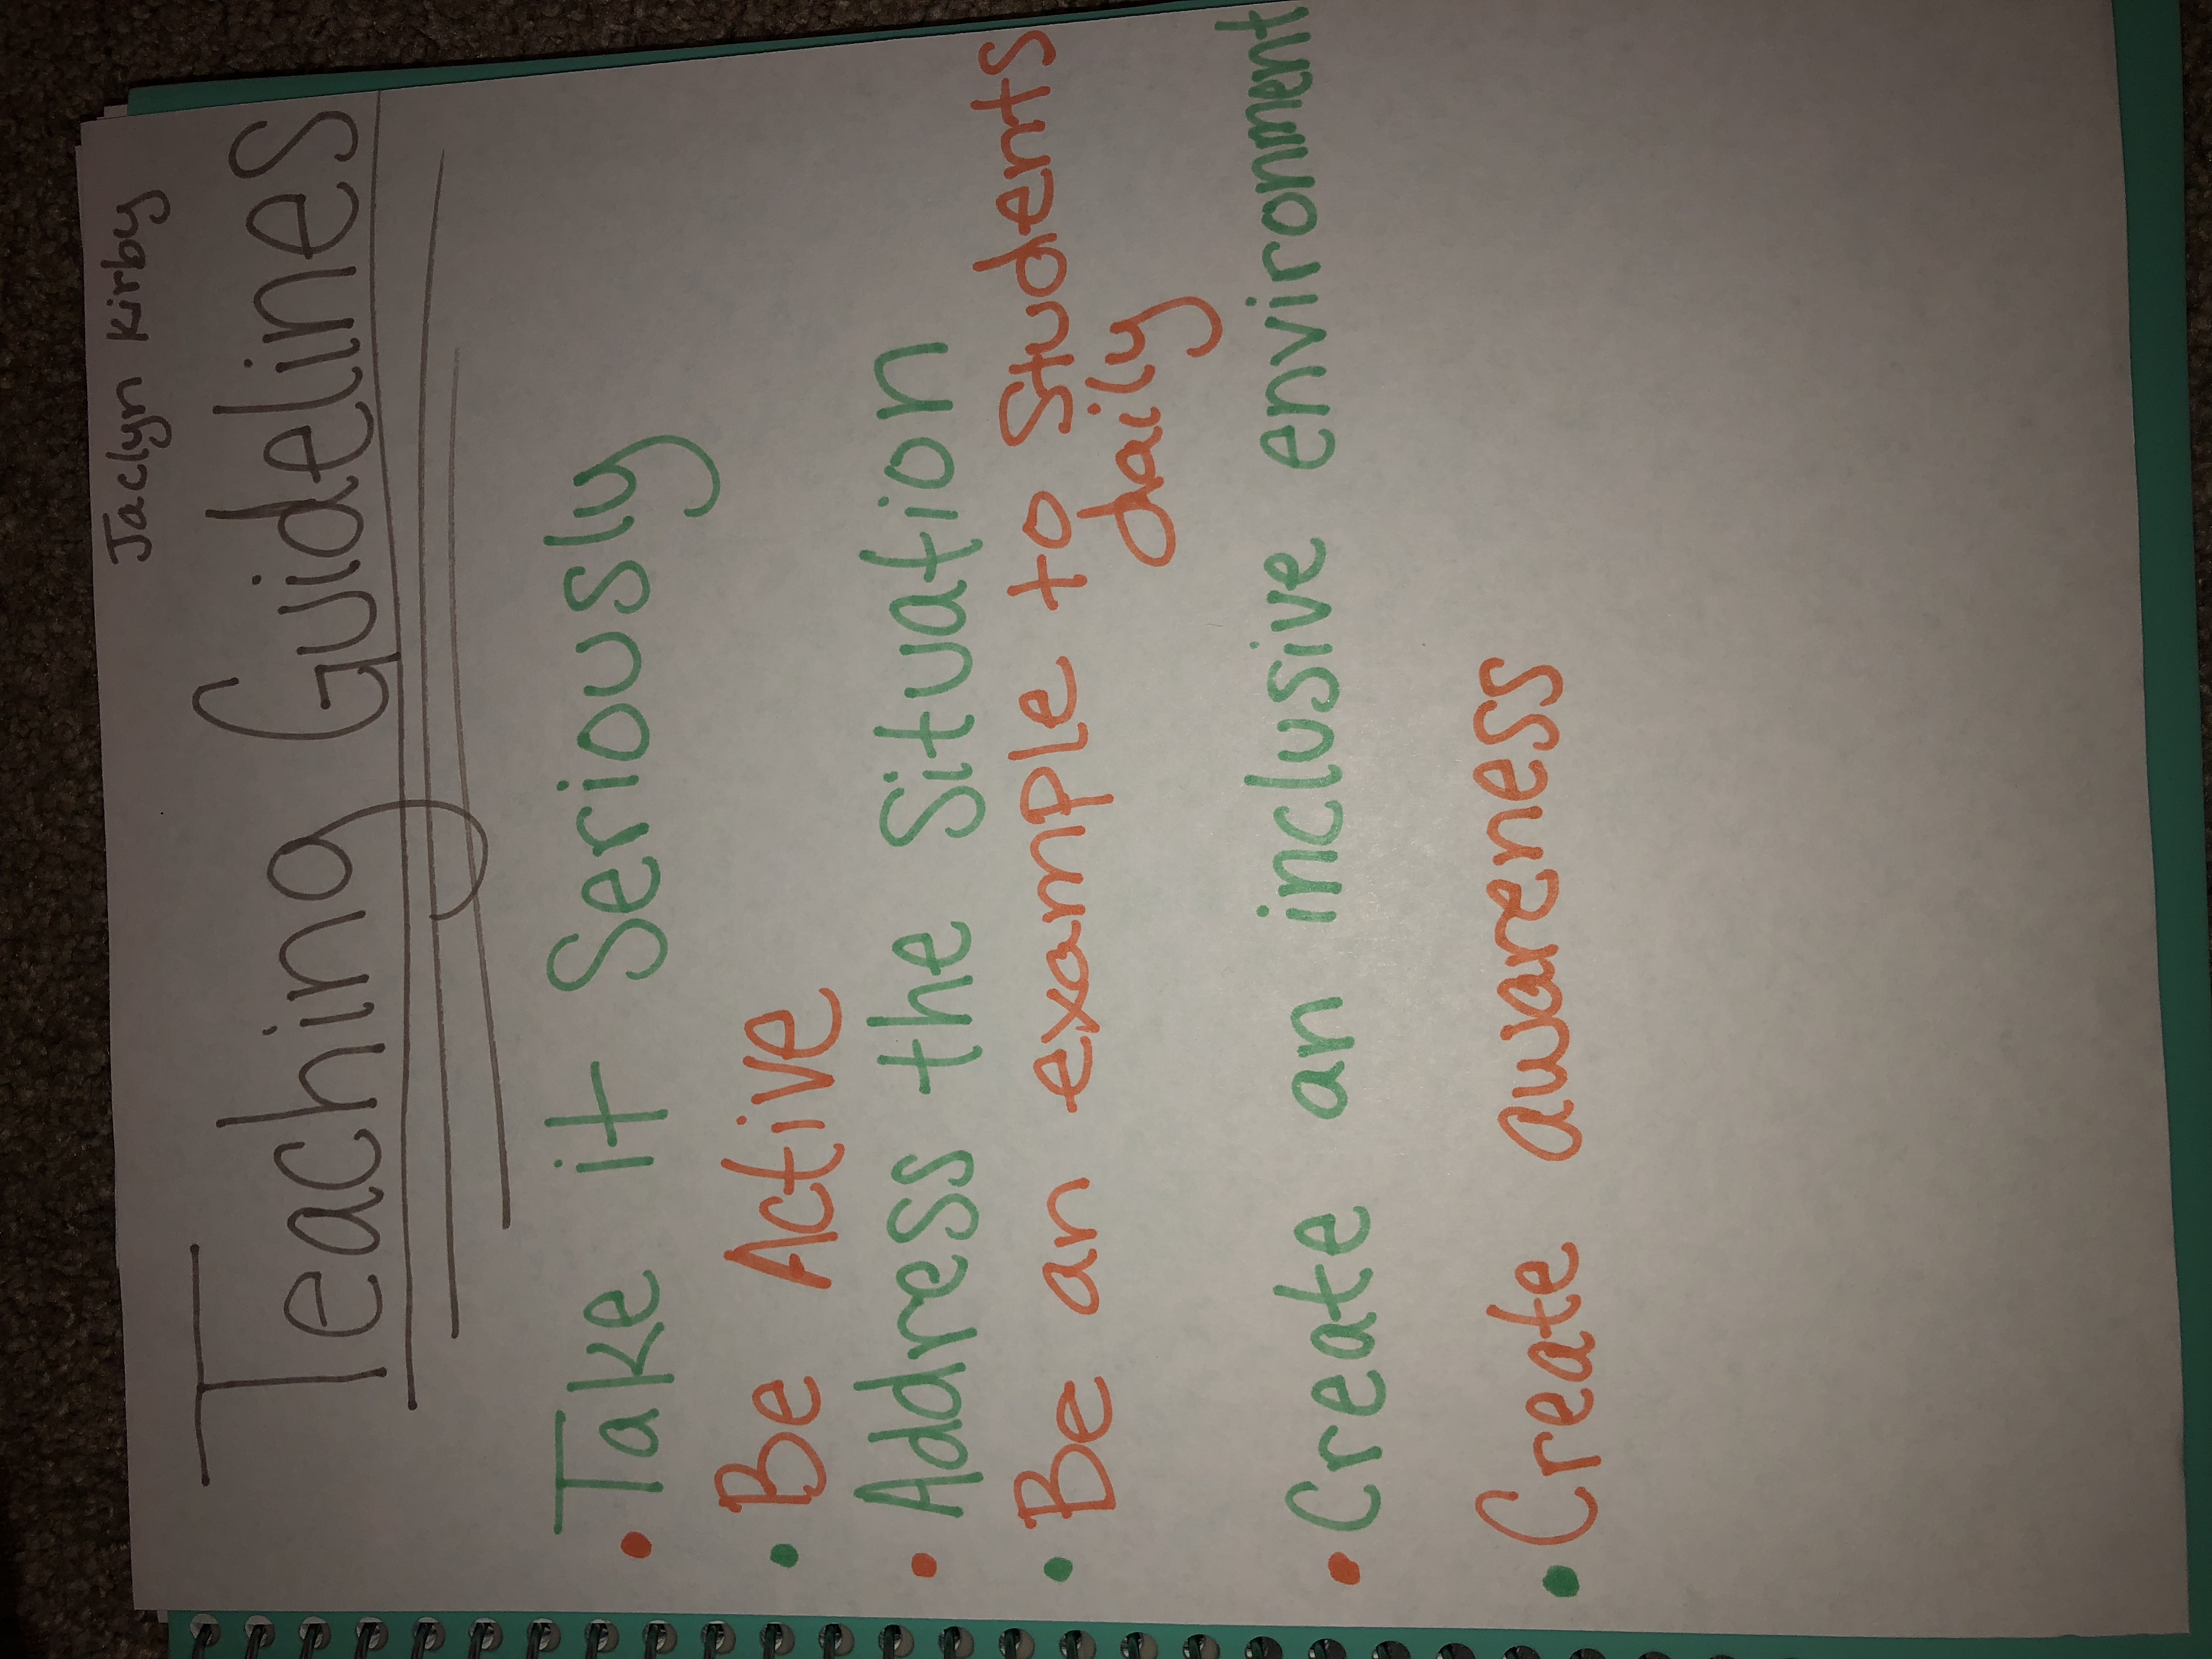 Jaclyn Kirby
Teaching Guidelines
• Take it Seriously
• Be Active
• Address the Situation
• Be an example to Students
daily
• Create an inclusive environment
• Create awareness